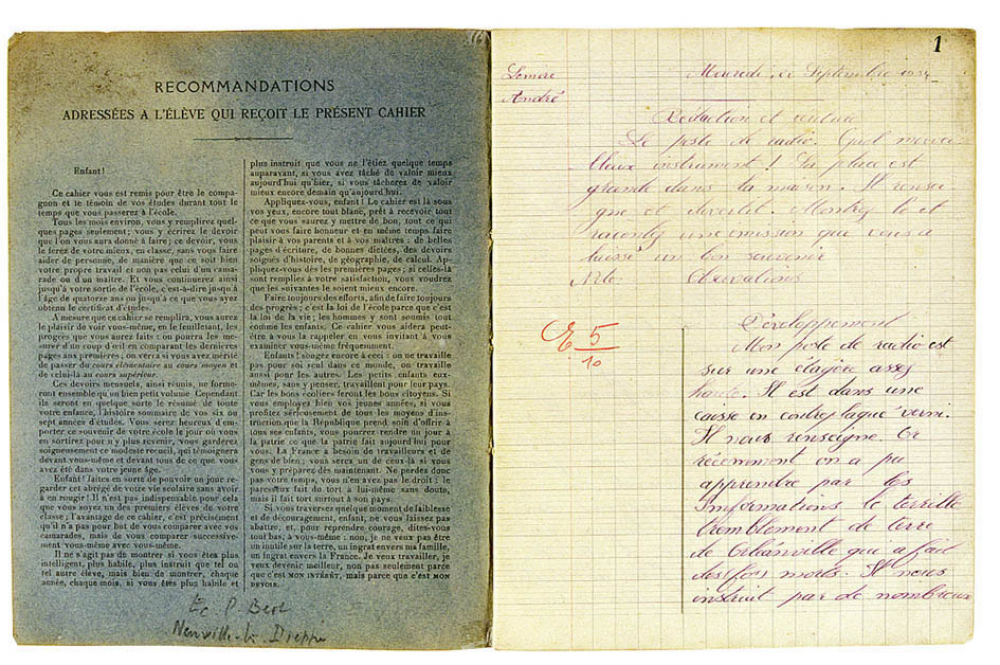 RECOMMANDATIONS
ADRESSÉES A L'ÉLÈVE QUI REÇOIT LE PRÉSENT CAHIER
Enfant!
Ce cahier vous est remis pour être le compa-
gnon et le témoin de vos études durant tout le
temps que vous passerez à l'école.
Tous les mois environ, vous y remplirez quel-
ques pages seulement; vous y écrirez le devoir
que l'on vous aura donné à faire; ce devoir, vous
le ferez de votre mieux, en classe, sans vous faire
aider de personne, de manière que ce soit bien
votre propre travail et non pas celui d'un cama-
rade ou d'un maître. Et vous continuerez ainsi
jusqu'à votre sortie de l'école, c'est-à-dire jusqu'à
l'âge de quatorze ans ou jusqu'à ce que vous ayez
obtenu le certificat d'études.
A mesure que ce cahier se remplira, vous aurez
le plaisir de voir vous-même, en le feuilletant, les
progrès que vous aurez faits; on pourra les me-
surer d'un coup d'œil en comparant les dernières
pages aux premières; on verra si vous avez mérité
de passer du cours élémentaire au cours moyen et
de celui-là au cours supérieur.
Ces devoirs mensuels, ainsi réunis, ne forme-
ront ensemble qu'un bien petit volume. Cependant
ils seront en quelque sorte le résumé de toute
votre enfance, l'histoire sommaire de vos six ou
sept années d'études. Vous serez heureux d'em-
porter ce souvenir de votre école le jour où vous
en sortirez pour n'y plus revenir, vous garderez
soigneusement ce modeste recueil, qui témoignera
devant vous-même et devant tous de ce que vous
avez été dans votre jeune âge.
Enfant! faites en sorte de pouvoir un jour re-
garder cet abrégé de votre vie scolaire sans avoir
à en rougir! Il n'est pas indispensable pour cela
que vous soyez un des premiers élèves de votre
classe; l'avantage de ce cahier, c'est précisément
qu'il n'a pas pour but de vous comparer avec vos
camarades, mais de vous comparer successive-
ment vous-même avec vous-même.
Il ne s'agit pas de montrer si vous êtes plus
intelligent, plus habile, plus instruit que tel ou
tel autre élève, mais bien de montrer, chaque
année, chaque mois, si vous êtes plus habile et
plus instruit que vous ne l'étiez quelque temps
auparavant, si vous avez tâché de valoir mieux
aujourd'hui qu'hier, si vous tâcherez de valoir
mieux encore demain qu'aujourd'hui.
Appliquez-vous, enfant! Le cahier est là sous
vos yeux, encore tout blanc, prêt à recevoir tout
ce que vous saurez y mettre de bon, tout ce qui
peut vous faire honneur et en même temps faire
plaisir à vos parents et à vos maîtres: de belles
pages d'écriture, de bonnes dictées, des devoirs
soignés d'histoire, de géographie, de calcul. Ap-
pliquez-vous dès les premières pages; si celles-là
sont remplies à votre satisfaction, vous voudrez
que les suivantes le soient mieux encore.
Faire toujours des efforts, afin de faire toujours
des progrès; c'est la loi de l'école parce que c'est
la loi de la vie; les hommes y sont soumis tout
comme les enfants. Ce cahier vous aidera peut-
être à vous la rappeler en vous invitant à vous
examiner vous-même fréquemment.
Enfants! songez encore à ceci: on ne travaille
pas pour soi seul dans ce monde, on travaille
aussi pour les autres. Les petits enfants eux-
mêmes, sans y penser, travaillent pour leur pays.
Car les bons écoliers feront les bons citoyens. Si
vous employez bien vos jeunes années, si vous
profitez sérieusement de tous les moyens d'ins-
truction que la République prend soin d'offrir à
tous ses enfants, vous pourrez rendre un jour à
la patrie ce que la patrie fait aujourd'hui pour
vous. La France a besoin de travailleurs et de
gens de bien; vous serez un de ceux-là si vous
vous y préparez dès maintenant. Ne perdez donc
pas votre temps, vous n'en avez pas le droit: le
paresseux fait du tort à lui-même sans doute,
mais il fait tort surtout à son pays.
Si vous traversez quelque moment de faiblesse
et de découragement, enfant, ne vous laissez pas
abattre, et, pour reprendre courage, dites-vous
tout bas, à vous-même: non, je ne veux pas être
un inutile sur la terre, un ingrat envers ma famille,
un ingrat envers la France. Je veux travailler, je
veux devenir meilleur, non pas seulement parce
que c'est MON INTÉRÊT, mais parce que c'est MON
DEVOIR.
Ec P. Bert
Neuville-les-Dieppe
1
Lemire
André
Septembre
Rédaction et écriture
Le poste de radio. Quel mervei
lleux instrument! Sa place est
grande dans la maison. Il rensei
gne et divertit. Montrez le et
racontez une émission que vous a
laissé un bon souvenir
Observations
E 5/10
Développement
Mon poste de radio est
sur une étagère assez
haute. Il est dans une
caisse en contreplaqué verni.
Il nous renseigne. Et
récemment on a pu
apprendre par les
Informations le terrible
tremblement de terre
de Orléanville qui a fait
morts. Il nous
instruit par de nombreux